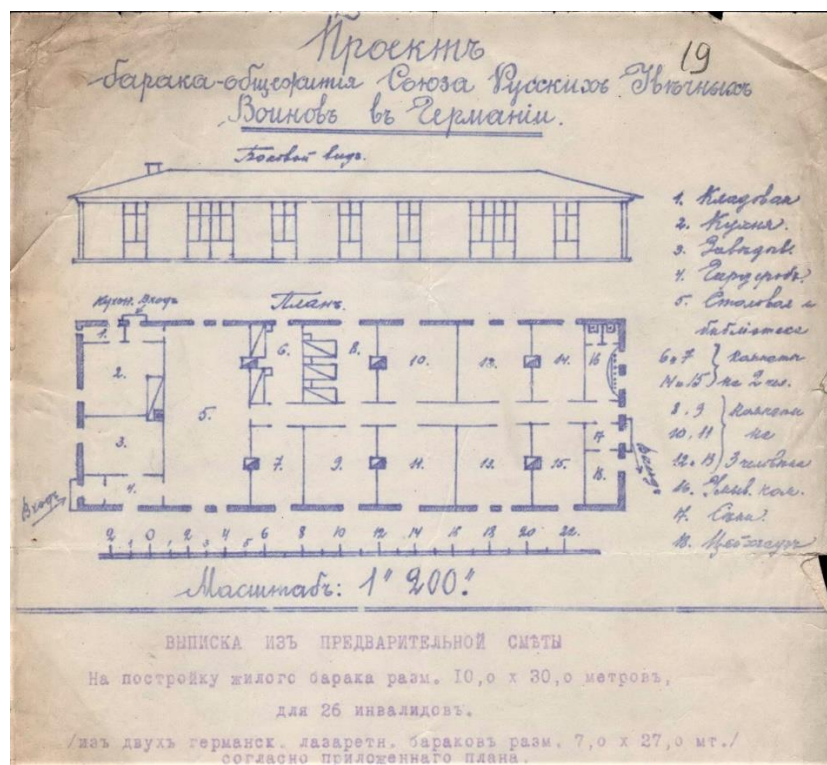 19
Проектъ
барака-общежитія Союза Русскихъ Увѣчныхъ
Воиновъ въ Германіи.
Боковой видъ.
1. Кладовая
2. Кухня.
3. Завѣдыв.
4. Гардеробъ.
5. Столовая и
библіотека
6 и 7 } комнаты
14 и 15 } на 2 чел.
8, 9 } комнаты
10, 11 } на
12 и 13 } 3 человѣка
16. Умыв. ком.
17. Сѣни.
18. Цейхгаузъ
Кухон. Входъ
Планъ.
1. 2. 3. 4. 5. 6. 7. 8. 9. 10. 11. 12. 13. 14. 15. 16 17 18.
Входъ
Входъ
2 1 0 1 2 3 4 5 6 8 10 12 14 16 18 20 22.
Масштабъ: 1" 200."
ВЫПИСКА ИЗЪ ПРЕДВАРИТЕЛЬНОЙ СМѢТЫ
На постройку жилого барака разм. 10,0 х 30,0 метровъ,
для 26 инвалидовъ.
/изъ двухъ германск. лазаретн. бараковъ разм. 7,0 х 27,0 мт./
согласно приложеннаго плана.